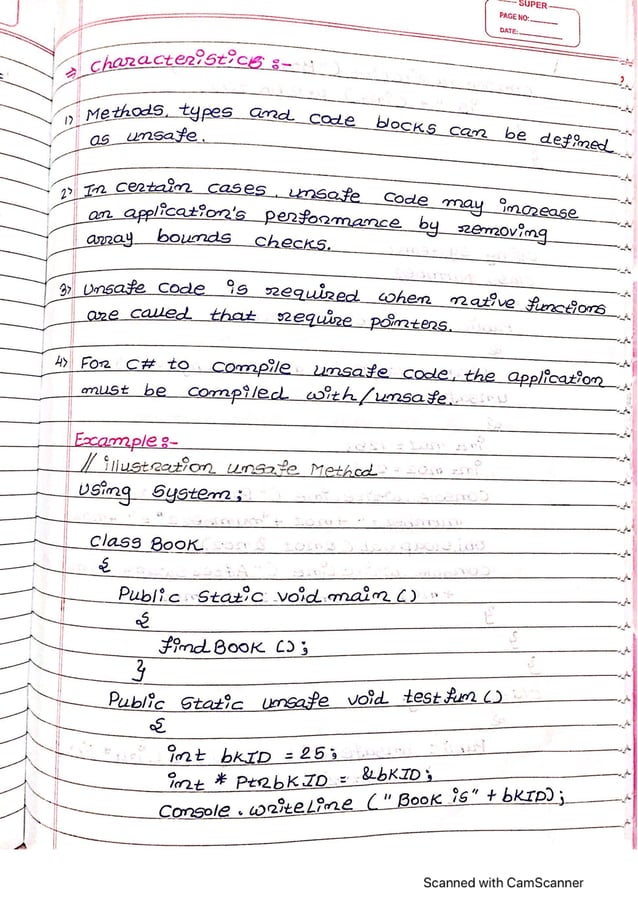 SUPER
PAGE NO:
DATE:
⇒ Characteristics :-
1) Methods, types and code blocks can be defined
as unsafe.
2) In certain cases, unsafe code may increase
an application's performance by removing
array bounds checks.
3) Unsafe code is required when native functions
are called that require pointers.
4) For C# to compile unsafe code, the application
must be compiled with /unsafe.
Example :-
// illustration unsafe Method
Using System;
Class Book
{
Public Static void main ()
{
findBook ();
}
Public Static unsafe void testfun ()
{
int bkID = 25;
int * PtrbkID = &bkID;
Console.writeLine ("Book is" + bkID);
Scanned with CamScanner